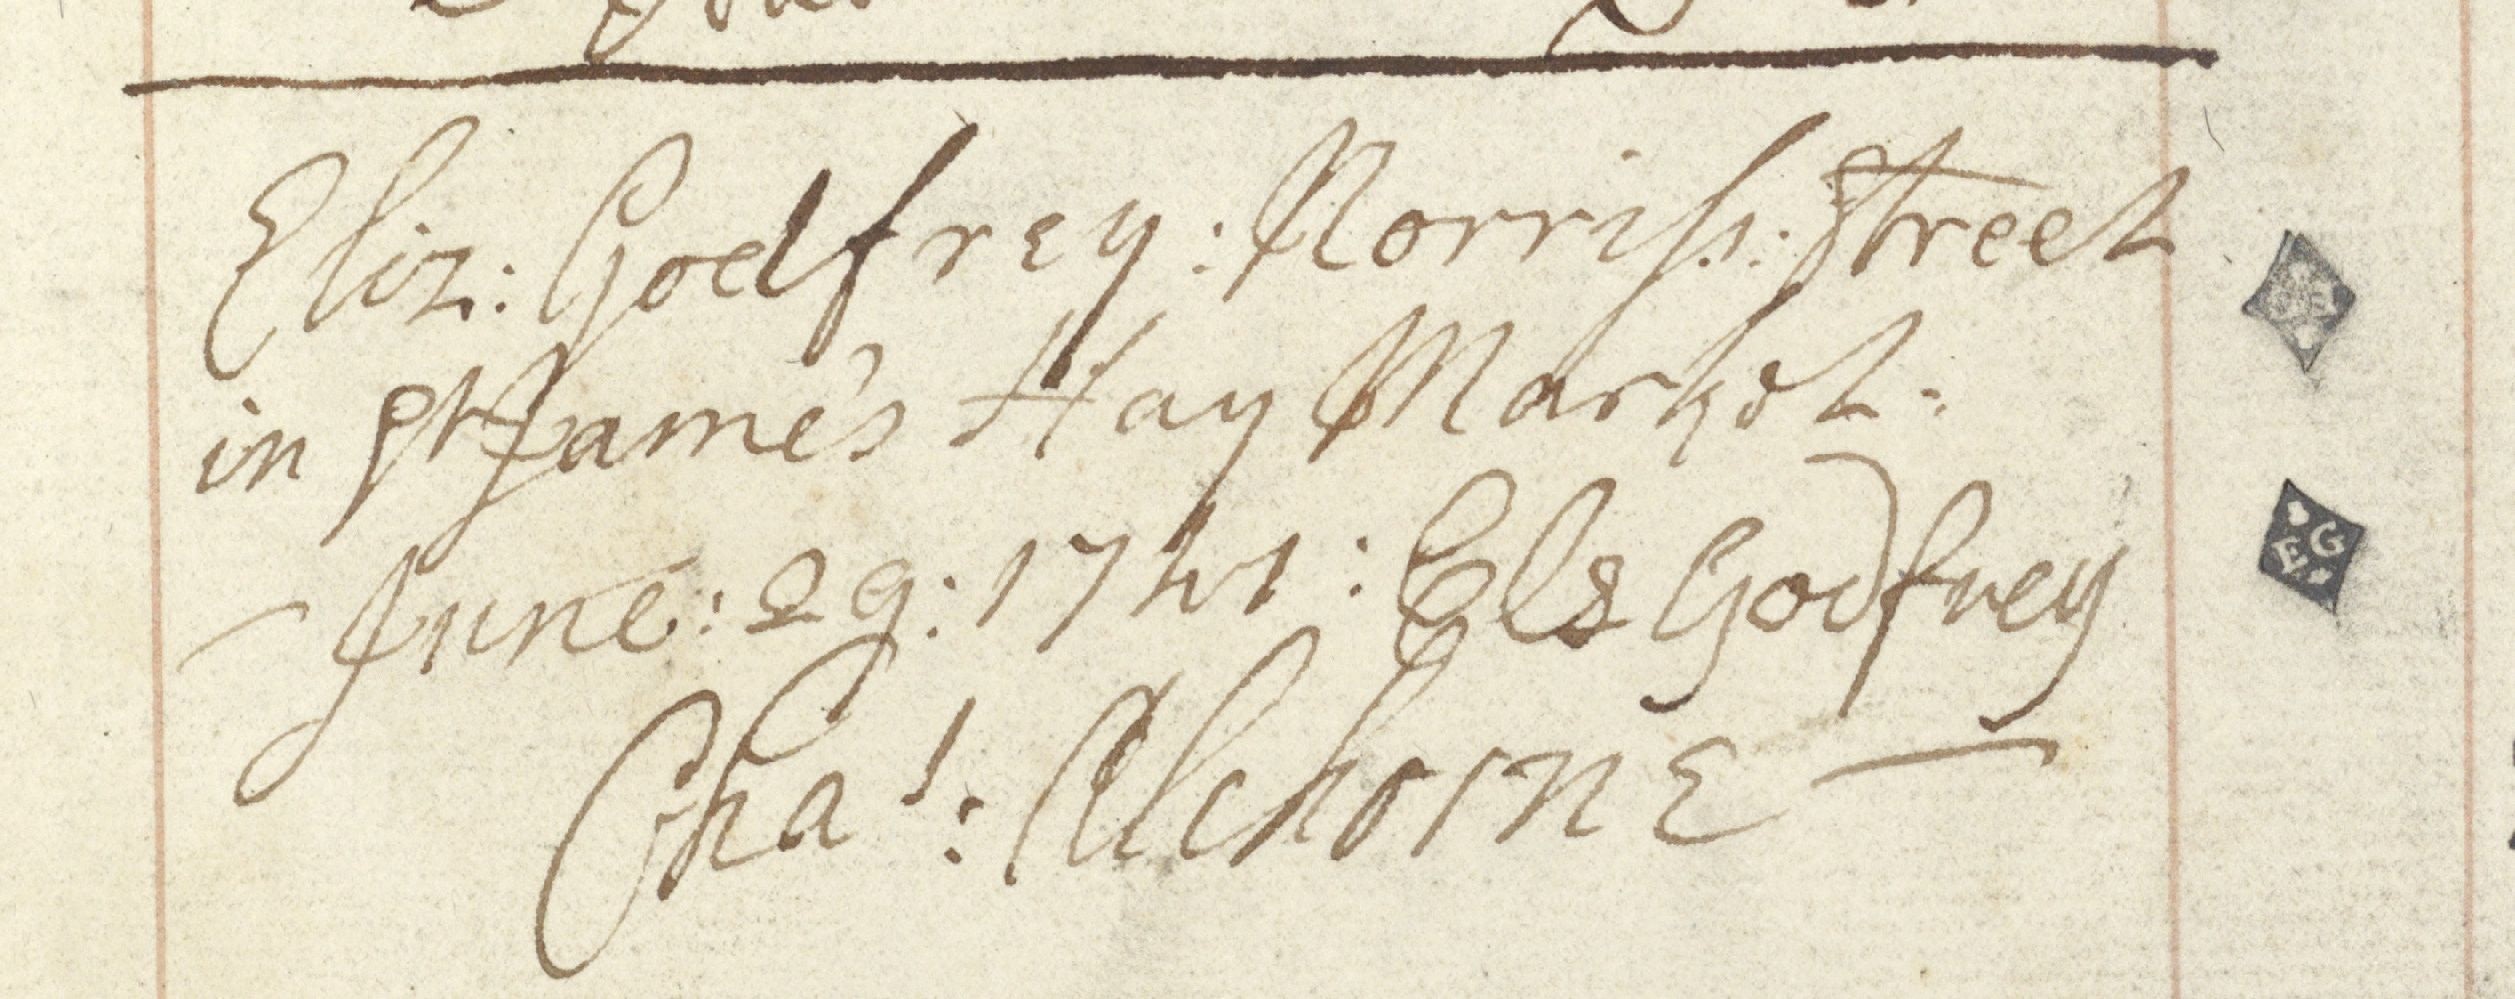 Eliz: Godfrey: Norriss: Street
in St James Hay Market:
June: 29: 1741: Els Godfrey
Chas: Alchorne
E G